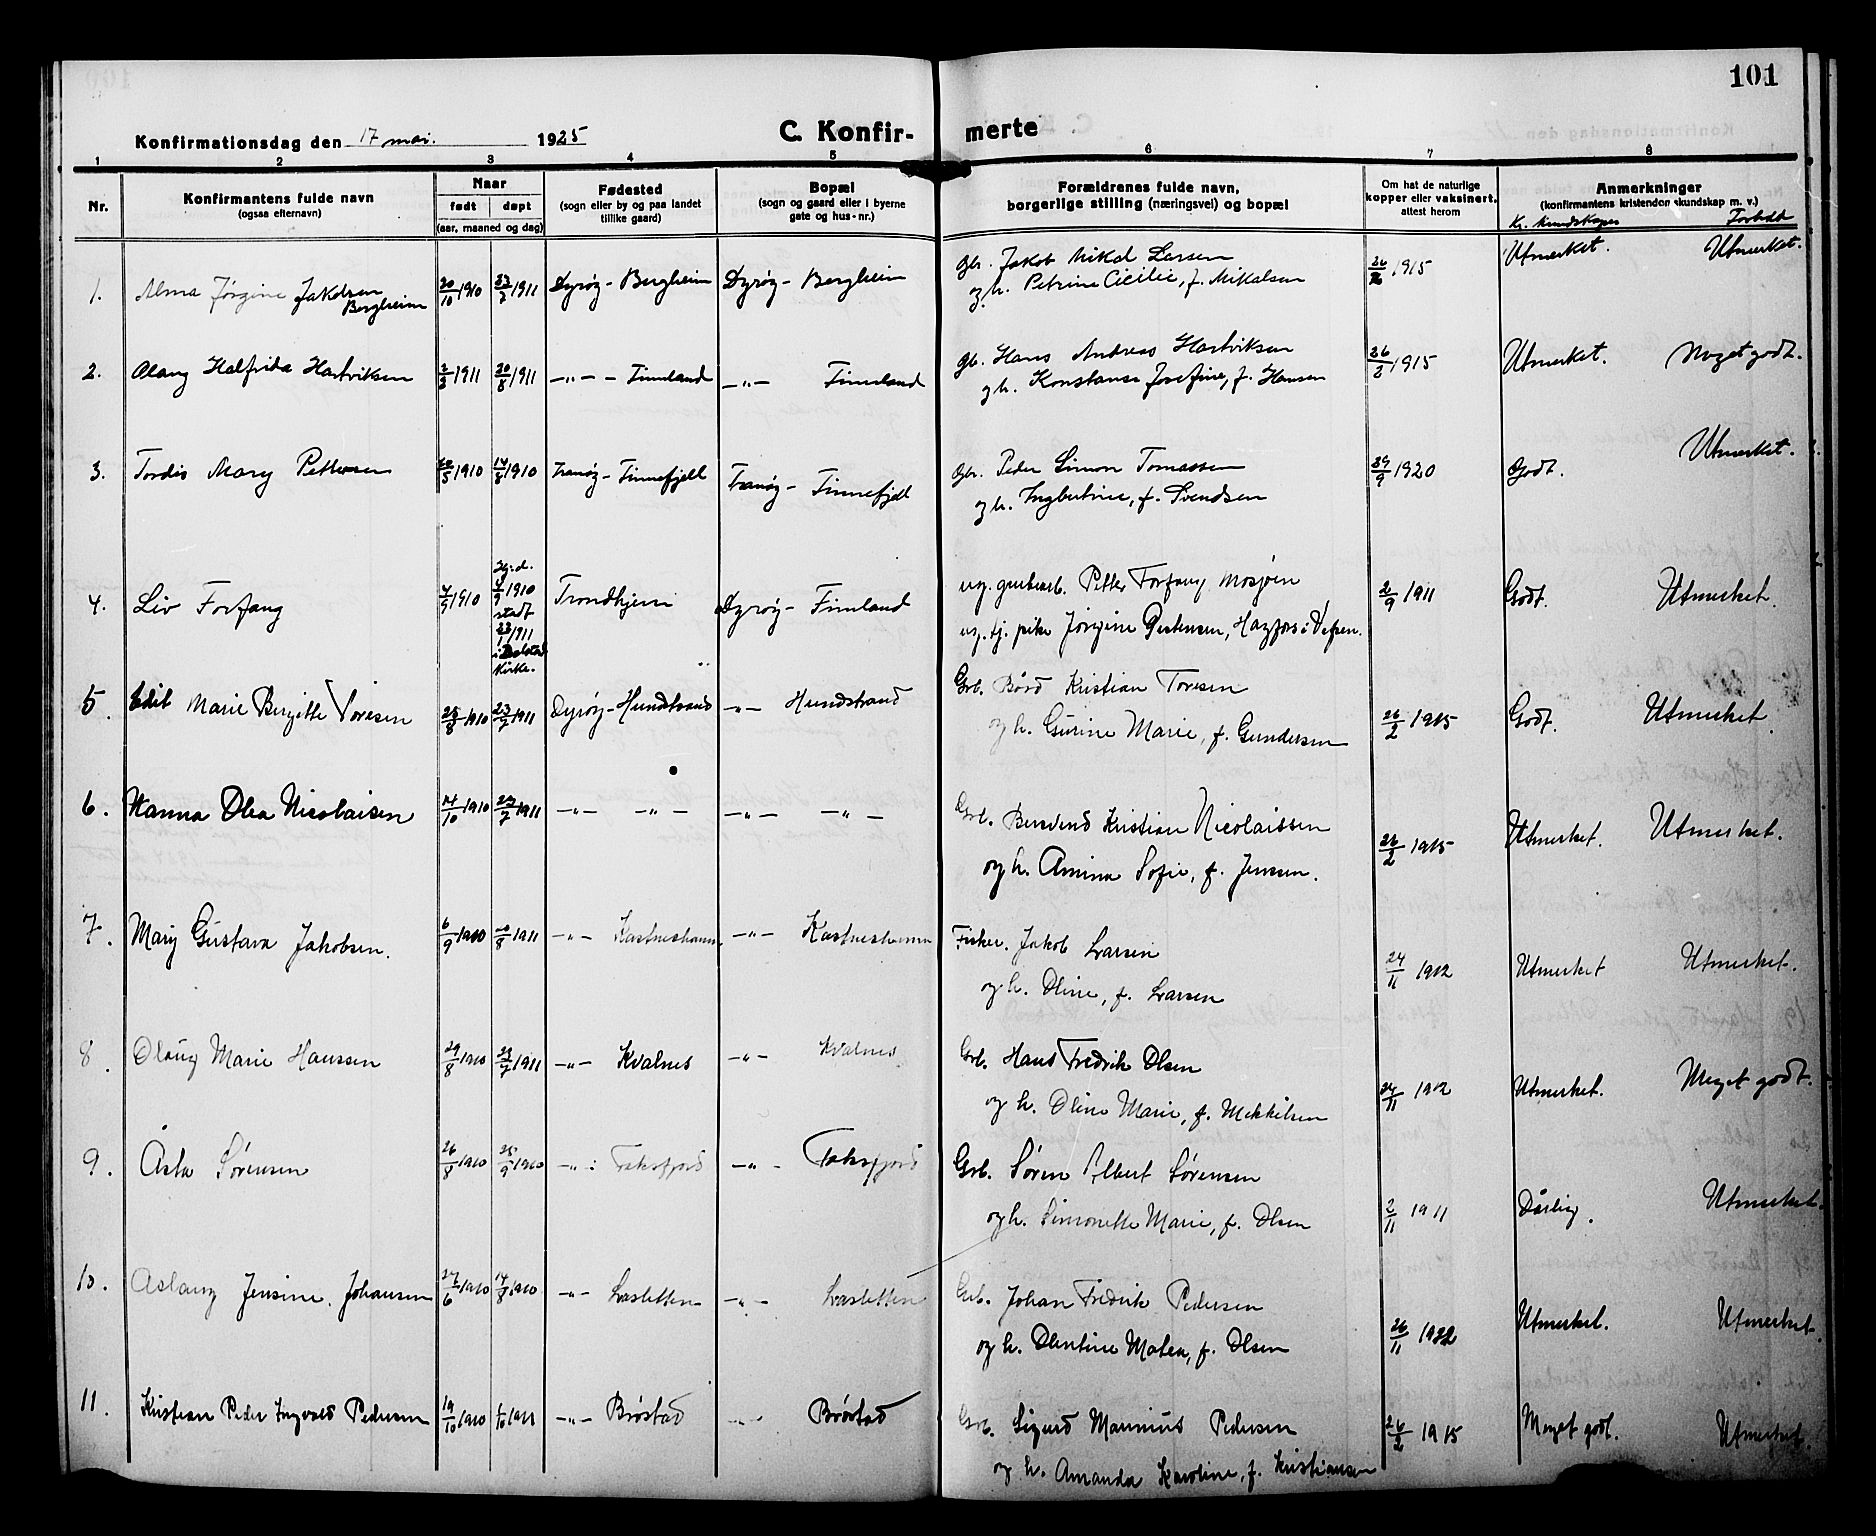 101
Konfirmationsdag den 17 mai. 1925
C. Konfirmerte
1 2 3 4 5 6 7 8
Nr.
Konfirmantens fulde navn
(ogsaa efternavn)
Naar
født døpt
(aar, maaned og dag)
Fødested
(sogn eller by og paa landet
tillike gaard)
Bopæl
(sogn og gaard eller i byerne
gate og hus-nr.)
Forældrenes fulde navn,
borgerlige stilling (næringsvei) og bopæl
Om hat de naturlige
kopper eller vaksinert.
attest herom
Anmerkninger
(konfirmantens kristendomskundskap m. v.)
Kr. kundskaper Forhold
1. Alma Jørgine Jakobsen 20/10 1910 1911 Dyrøy - Bergheim Dyrøy - Bergheim Gbr. Jakob Mikal Larsen 1915 Utmerket. Utmerket.
Bergheim og h. Petrine Cicilie, f. Mikalsen
2. Olaug Halfrida Hartviksen 1911 20/8 1911 -"- - Finnland -"- Finnland Gb. Hans Andreas Hartviksen 26/2 1915 Utmerket. Meget godt.
og h. Konstanse Josefine, f. Hansen
3. Tordis Mary Pettersen 1910 14/8 1910 Tranøy - Finnefjell Tranøy - Finnefjell Gbr. Peder Simon Tomassen 1920 Godt. Utmerket.
og h. Ingbertine, f. Svendsen
4. Liv Forfang 4/9 1910 Hj.d. 4/9 1910 stadf. 1911 i Dolstad Kirke. Trondhjem Dyrøy - Finnland ug. Petter Forfang Mosjøen 2/9 1911 Godt. Utmerket.
ug. tj. pike Jørgine Pedersen, i Vefsen.
5. Edit Marie Birgitte Toresen 25/8 1910 23/7 1911 Dyrøy - Hundstrand -"- Hundstrand Grb. Bård Kristian Toresen 26/2 1915 Godt. Utmerket
og h. Gurine Marie, f. Gundersen
6. Hanna Olea Nicolaisen 14/10 1910 23/7 1911 -"- -"- -"- -"- Grb. Kristian Nicolaissen 26/2 1915 Utmerket. Utmerket.
og h. Amina Sofie, f. Jensen.
7. Mary Gustava Jakobsen. 6/9 1910 1911 -"- Kastneshamn -"- Kastneshamn Fisker. Jakob Larsen 24/11 1912 Utmerket Utmerket.
og h. Oline, f. Larsen
8. Olaug Marie Hanssen 29/8 1910 23/7 1911 -"- Kvalnes -"- Kvalnes Grb. Hans Fredrik Olsen 24/11 1912 Utmerket. Meget godt.
og h. Oline Marie, f. Mikkelsen
9. Åsta Sørensen 26/8 1910 25/9 1910 -"- Faksfjord -"- Faksfjord Grb. Søren Albert Sørensen 2/11 1911 Dårlig. Utmerket.
og h. Simonette Marie, f. Olsen
10. Aslaug Jensine Johansen 27/6 1910 14/8 1910 -"- Lasletten -"- Lasletten Grb. Johan Fredrik Pedersen 26/11 1922 Utmerket. Utmerket.
og h. Olentine Matea, f. Olsen
11. Kristian Peder Ingvald Pedersen 19/10 1910 1/10 1911 -"- Brøstad -"- Brøstad Grb. Sigurd Marinius Pedersen 26/2 1915 Meget godt. Utmerket.
og h. Amanda Karoline, f. Kristiansen